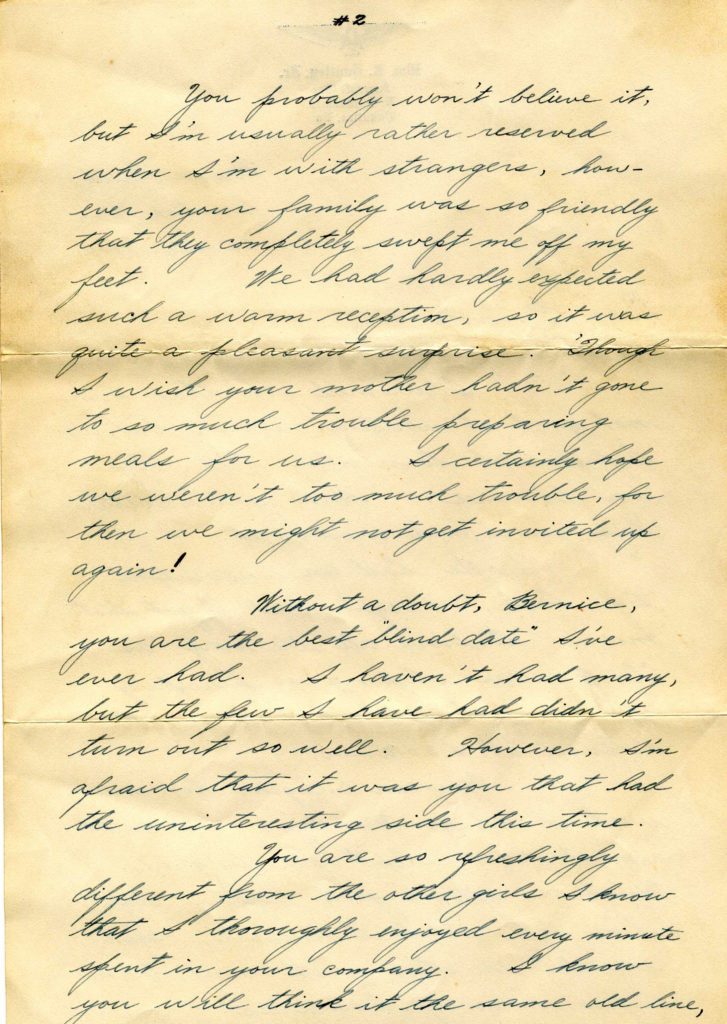 #2
You probably won't believe it,
but I'm usually rather reserved
when I'm with strangers, how-
ever, your family was so friendly
that they completely swept me off my
feet. We had hardly expected
such a warm reception, so it was
quite a pleasant surprise. 'Though
I wish your mother hadn't gone
to so much trouble preparing
meals for us. I certainly hope
we weren't too much trouble, for
then we might not get invited up
again!
Without a doubt, Bernice,
you are the best "blind date" I've
ever had. I haven't had many,
but the few I have had didn't
turn out so well. However, I'm
afraid that it was you that had
the uninteresting side this time.
You are so refreshingly
different from the other girls I know
that I thoroughly enjoyed every minute
spent in your company. I know
you will think it the same old line,